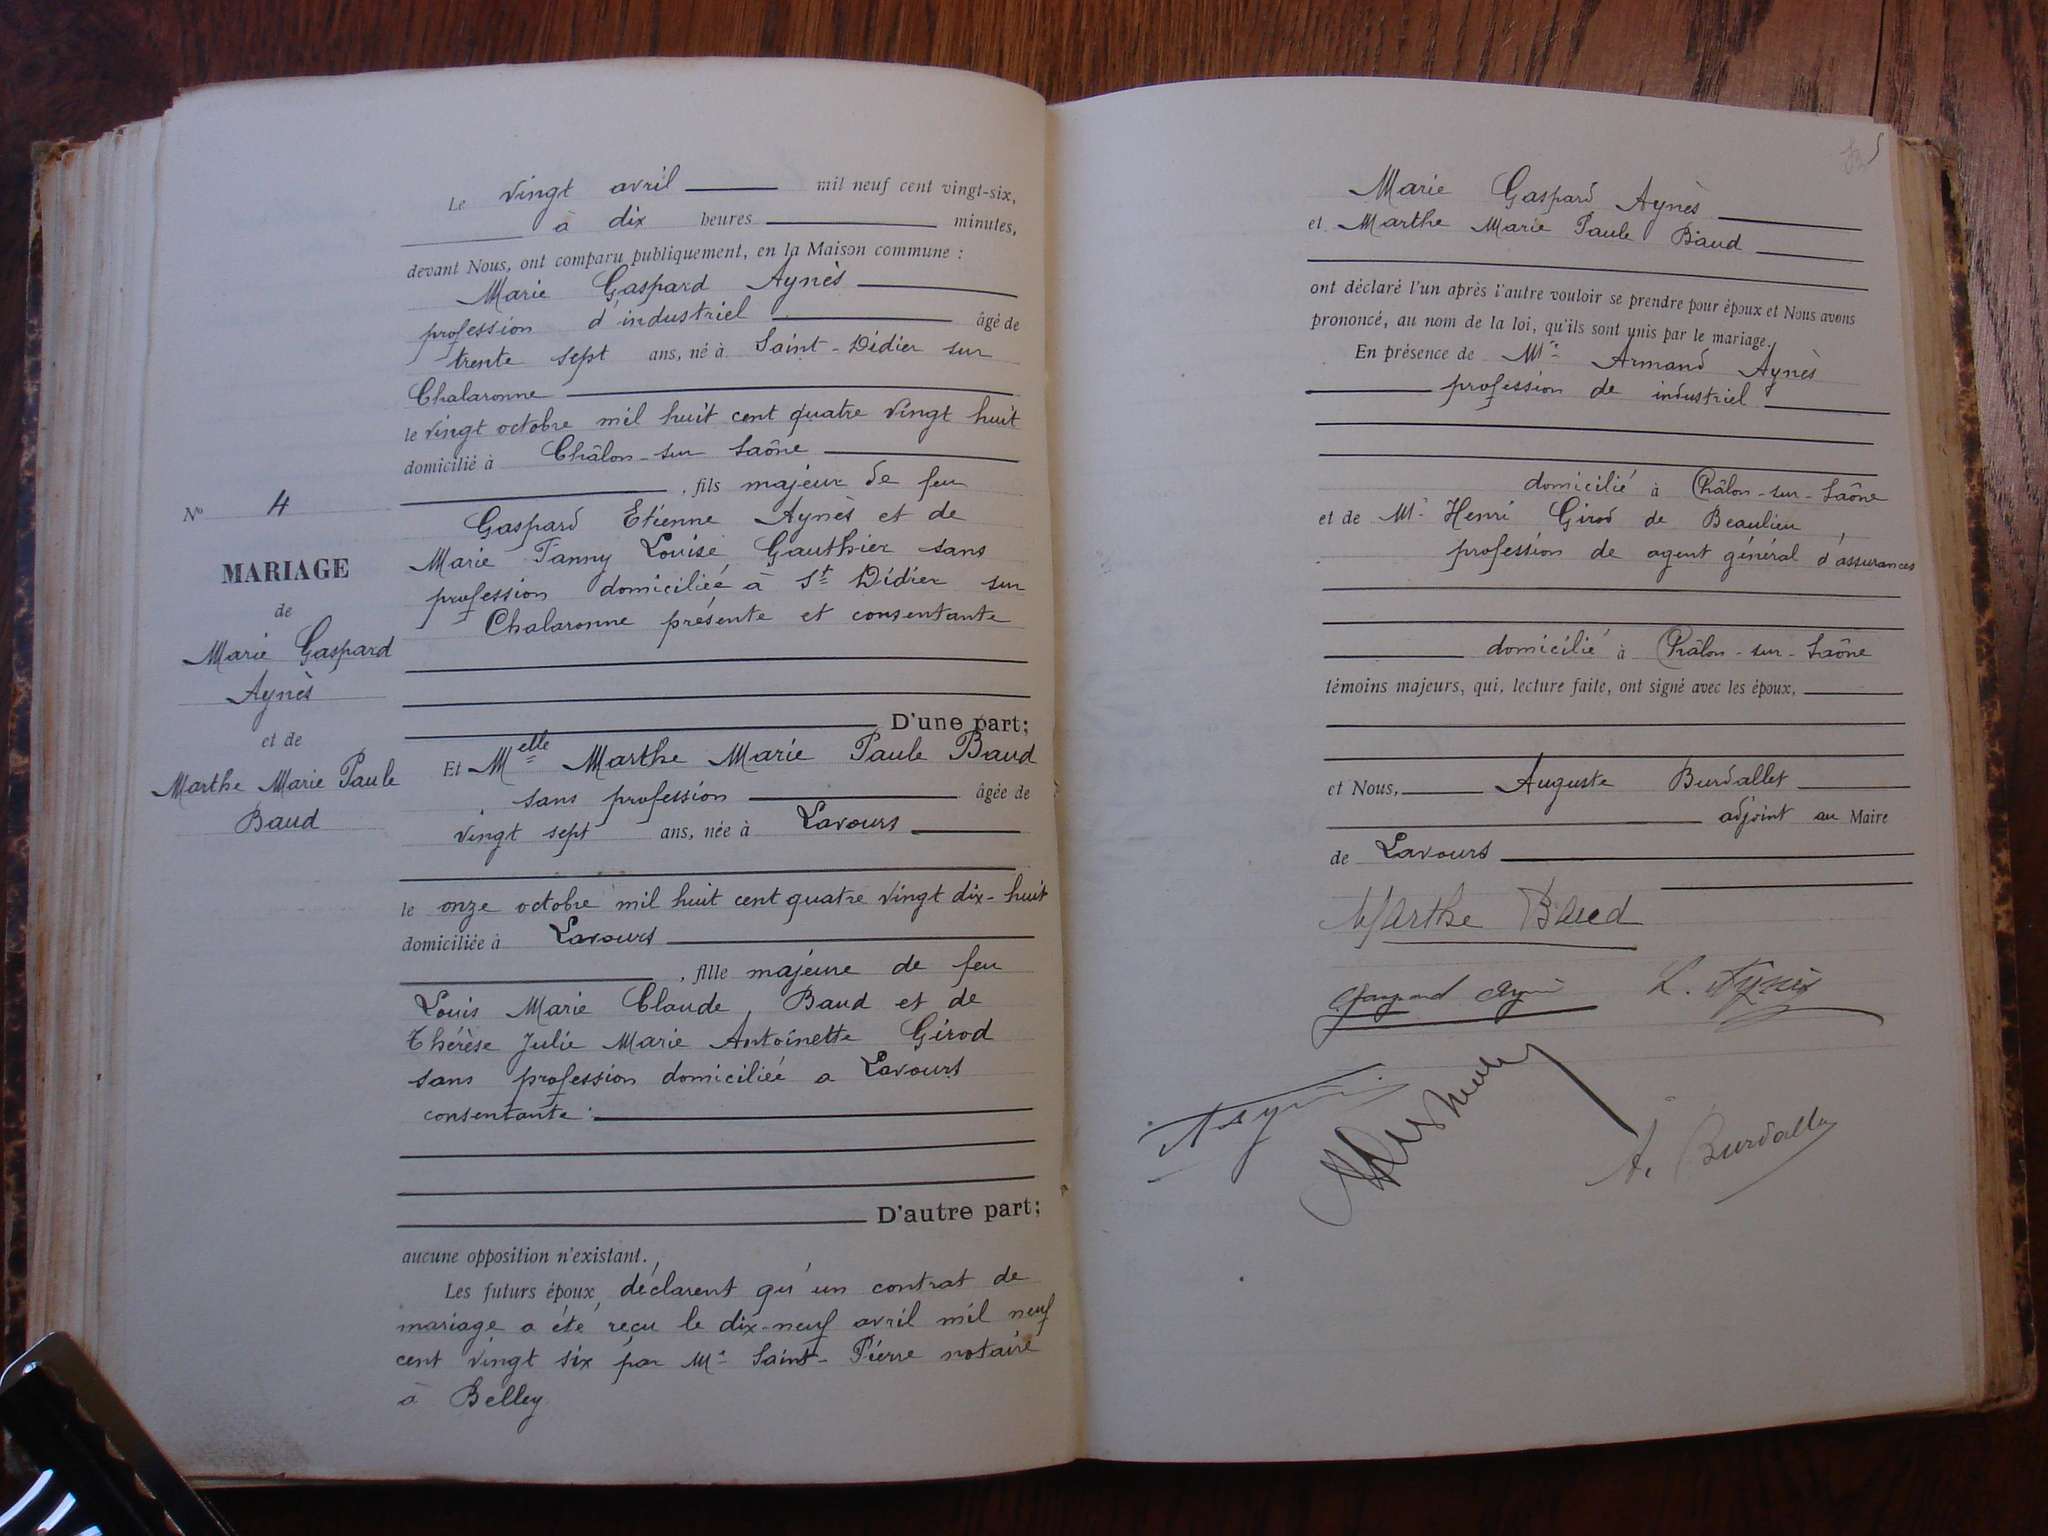 Le vingt avril mil neuf cent vingt-six,
à dix heures minutes,
devant Nous, ont comparu publiquement, en la Maison commune :
Marie Gaspard Aynès
profession d'industriel âgé de
trente sept ans, né à Saint-Didier sur
Chalaronne
le vingt octobre mil huit cent quatre vingt huit
domicilié à Châlon-sur Saône
, fils majeur de feu
Gaspard Etienne Aynès et de
Marie Fanny Louise Gauthier sans
profession domiciliée à St Didier sur
Chalaronne présente et consentante
D'une part;
Et Melle Marthe Marie Paule Baud
sans profession âgée de
vingt sept ans, née à Lavours
le onze octobre mil huit cent quatre vingt dix-huit
domiciliée à Lavours
, fille majeure de feu
Louis Marie Claude Baud et de
Thérèse Julie Marie Antoinette Girod
sans profession domiciliée a Lavours
consentante :
D'autre part;
aucune opposition n'existant.
Les futurs époux déclarent qu'un contrat de
mariage a été reçu le dix-neuf avril mil neuf
cent vingt six par Me Saint-Pierre notaire
à Belley
No 4
MARIAGE
de
Marie Gaspard
Aynès
et de
Marthe Marie Paule
Baud
5
Marie Gaspard Aynès
et Marthe Marie Paule Baud
ont déclaré l'un après l'autre vouloir se prendre pour époux et Nous avons
prononcé, au nom de la loi, qu'ils sont unis par le mariage.
En présence de Mr Armand Aynès
profession de industriel
domicilié à Châlon-sur-Saône
et de Mr Henri Girod de Beaulieu
profession de agent général d'assurances
domicilié à Châlon-sur-Saône
témoins majeurs, qui, lecture faite, ont signé avec les époux,
et Nous, Auguste Burdallet
adjoint au Maire
de Lavours
Marthe Baud
Gaspard Aynès L. Aynès
Aynès
A. Burdallet